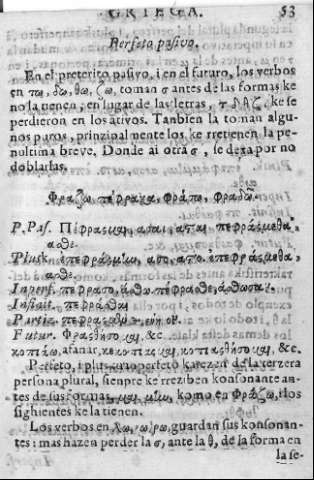 GRIEGA. 53
Perfeto pasivo.
En el preterito pasivo, i en el futuro, los verbos
en πω, δω, θω, ζω, toman σ antes de las formas ke
no la tienen, en lugar de las letras, τ δ θ ζ, ke se
perdieron en los ativos. Tanbien la toman algu-
nos puros, prinzipalmente los ke rretienen la pe-
nultima breve. Donde ai otra σ, se dexa por no
doblarlas.
Φραζω, πεφρακα, φράσω,
P. Pas. Πέφρασμαι, σαι, σται πεφράσμεθα,
σθε.
Plusk. ἐπεφράσμην, σο, στο. ἐπεφράσμεθα,
σθε.
Inperf. πέφρασο, άσθω. πέφρασθε, άσθωσαν.
Infinit. πεφράσθαι
Partiz. πεφρασμένος
Futur. Φρασθήσομαι, &c.
κοπιάω, afanar, κεκοπίασμαι, κοπιασθήσομαι, &c.
Perfeto, i plusquanperfeto karezen de la terzera
persona plural, sienpre ke rreziben konsonante an-
tes de sus formas, μαι, μην, komo en φράζω, i los
sighientes ke la tienen.
Los verbos en λω, guardan sus konsonan-
tes: mas hazen perder la σ, ante la θ, de la forma en
la se-